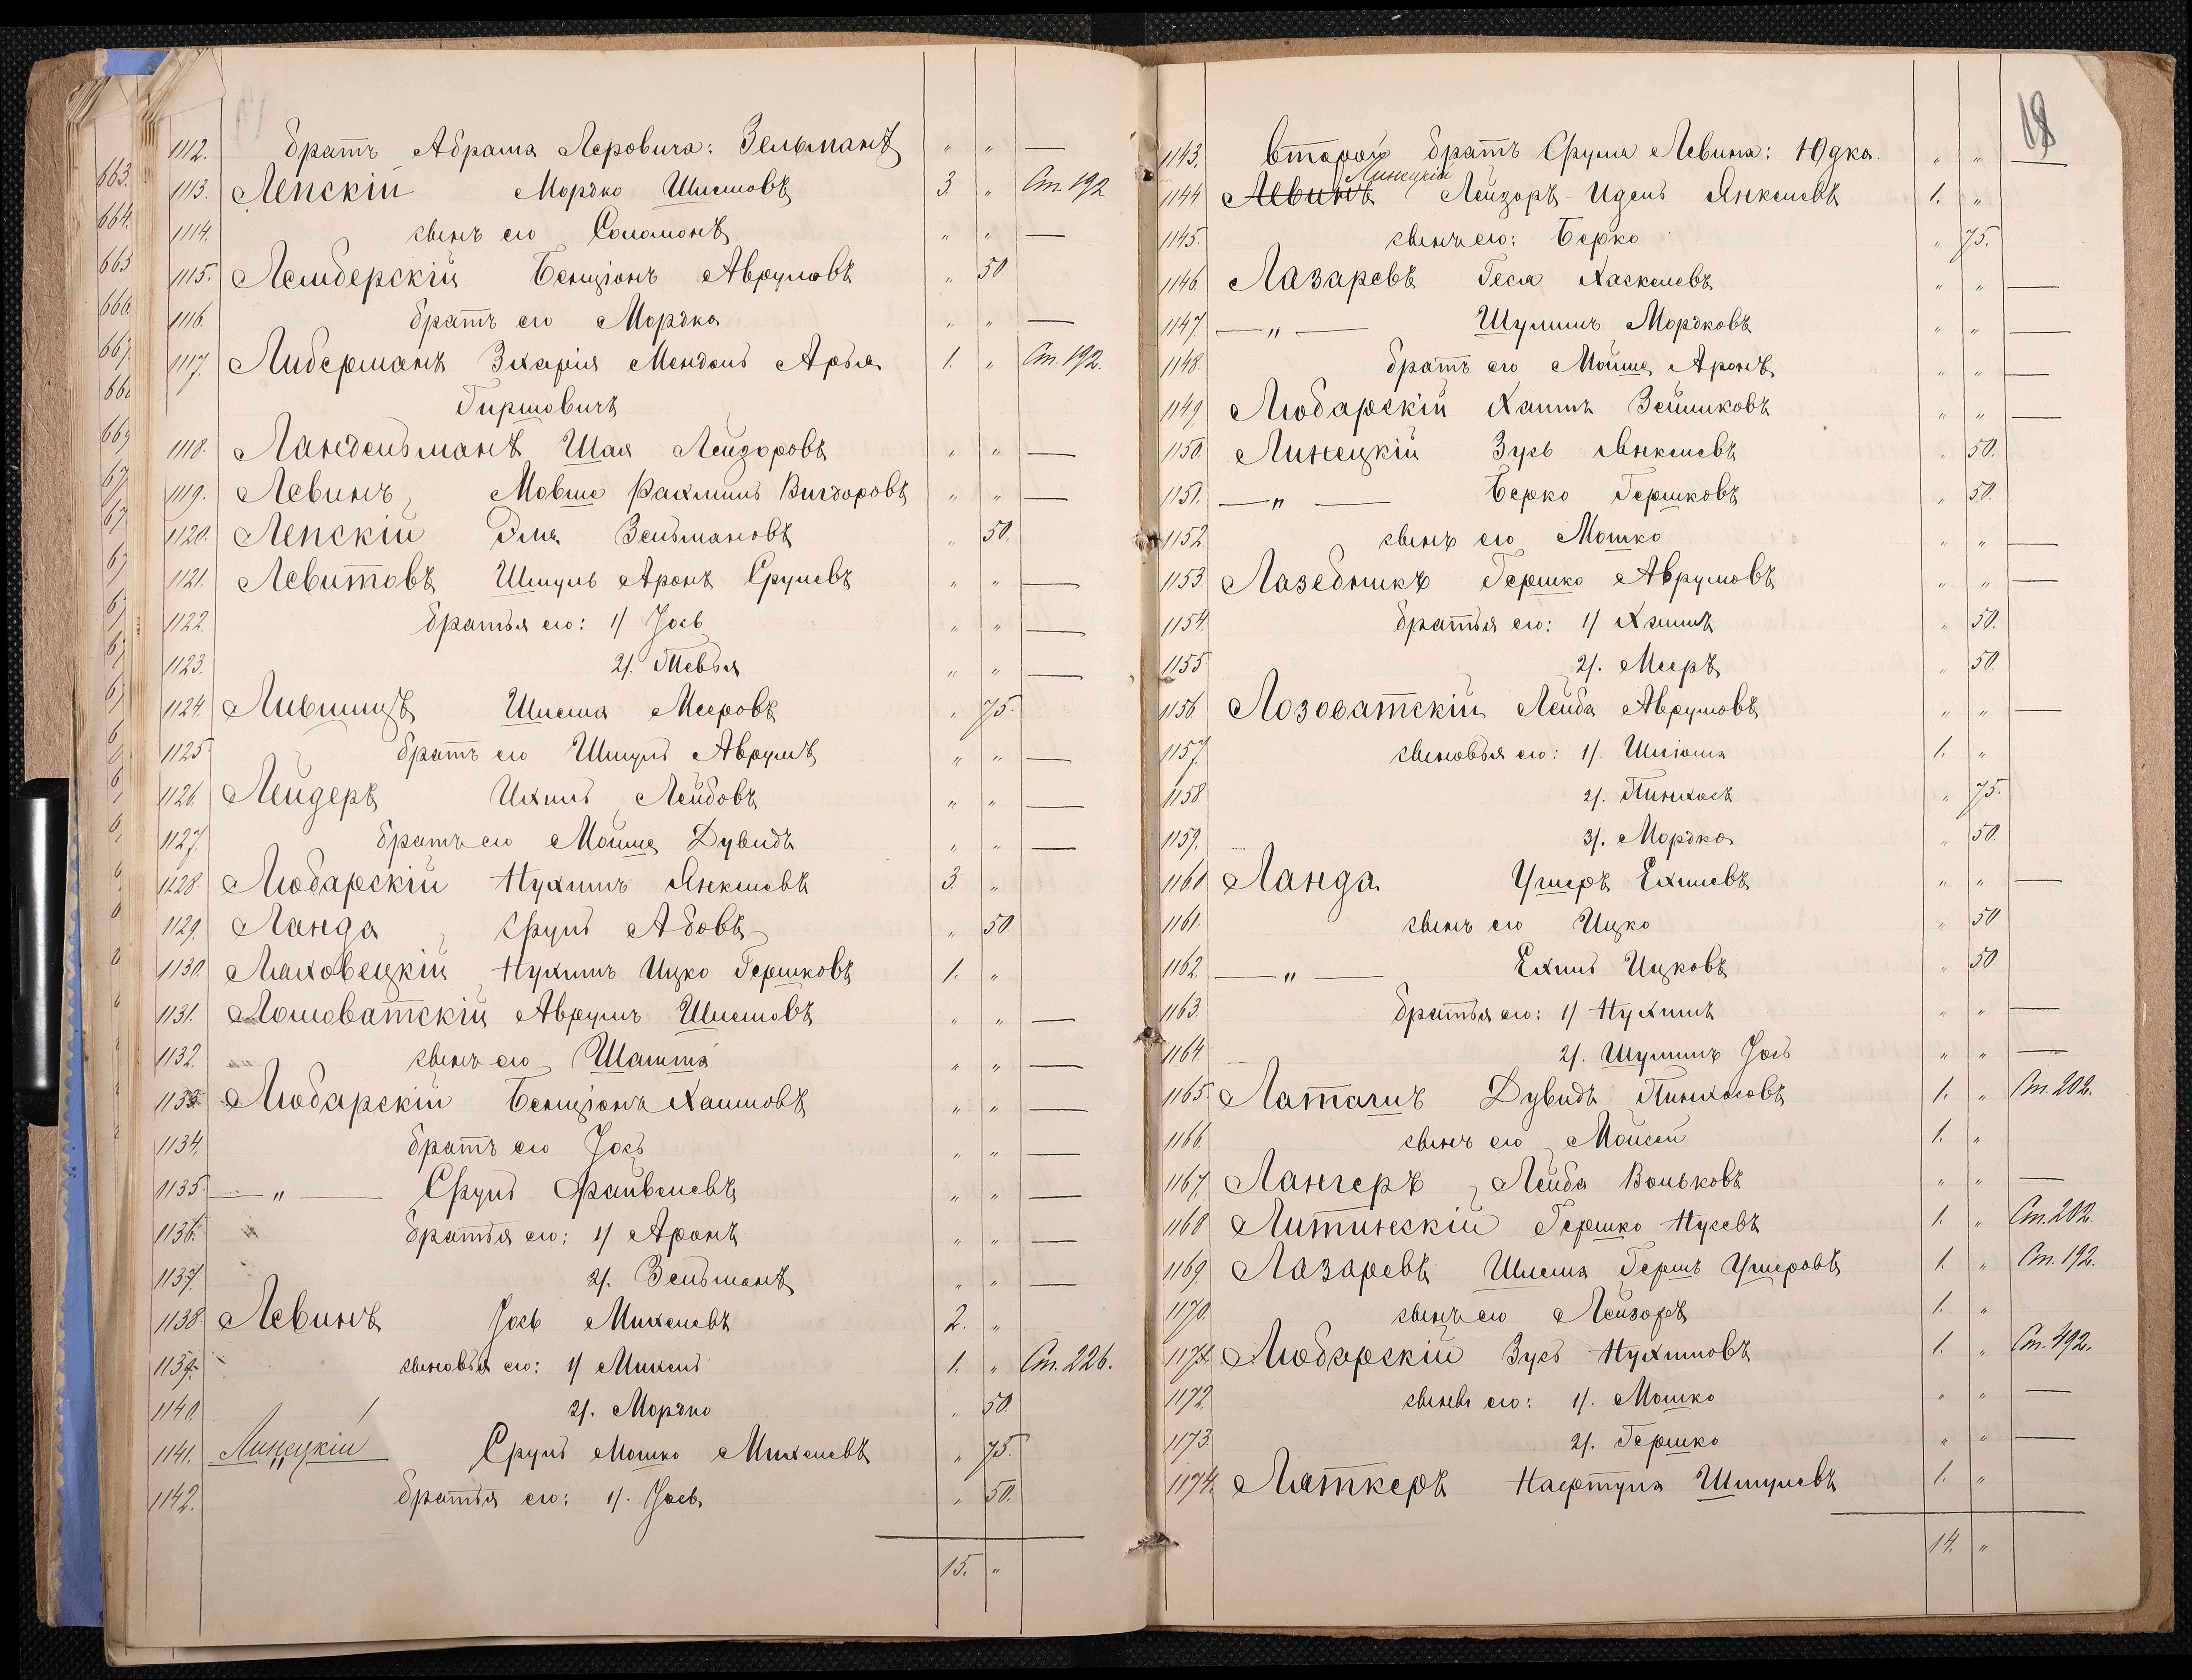 1112. братъ Абрама Леровича: Зельманъ " " —
1113. Лепскій Мордко Шлемовъ 3 " Ст. 192
1114. сынъ его Соломонъ " " —
1115. Лембергскій Бенціонъ Аврумовъ " 50
1116. братъ его Мордко " " —
1117. Либерманъ Зхарія Мендель Арья 1. " Ст. 192.
Гиршовичъ
1118. Ландельманъ Шая Лейзоровъ " " —
1119. Левинъ Мовше Рахмиль Вигдоровъ " " —
1120. Лепскій Эля Зельмановъ " 50.
1121. Левитовъ Шмуль Аронъ Срулевъ " " —
1122. братья его: 1/ Іось " " —
1123. 2/. Тевья " " —
1124. Лившицъ Шлема Мееровъ " 75.
1125 братъ его Шмуль Аврумъ " " —
1126. Лейдеръ Ихиль Лейбовъ " " —
1127. братъ его Мойше Дувидъ " " —
1128 Любарскій Нухимъ Янкелевъ 3. "
1129. Ланда Сруль Абовъ " 50
1130. Лаховецкій Нухимъ Ицко Гершковъ 1. "
1131. Ломоватскій Аврумъ Шлемовъ " " —
1132. сынъ его " " —
1133. Любарскій Бенціонъ Хаимовъ " " —
1134. братъ его Іось " " —
1135. — " — Сруль Файвелевъ " " —
1136. братья его: 1/ Аронъ " " —
1137. 2/. Зельманъ " " —
1138. Левинъ Іось Михелевъ 2. "
1139. сыновья его: 1/ Михель 1. " Ст. 226.
1140. 2/. Мордко " 50.
1141. Линецкій " Сруль Мошко Михелевъ " 75.
1142. братья его: 1/. Іось " 50.
15. "
18
1143. Второй братъ Срула Левина: Юдка. " " —
Линецкій
1144 Левинъ Лейзоръ-Идель Янкелевъ 1. "
1145. сынъ его: Берко " 75.
1146 Лазаревъ Геся Хаскелевъ " " —
1147 — " — Шулимъ Мордковъ " " —
1148. братъ его Мойше Аронъ " " —
1149. Любарскій Хаимъ Зейликовъ " " —
1150. Линецкій Зусь Янкелевъ " 50.
1151. — " — Берко Гершковъ " 50.
1152 сынъ его Мошко " " —
1153 Лазебникъ Гершко Аврумовъ " " —
1154. братья его: 1/ Хаимъ " 50.
1155 2/. Мееръ " 50.
1156 Лозоватскій Лейба Аврумовъ " " —
1157 сыновья его: 1/. Шлиома 1. "
1158 2/. Пинхосъ " 75.
1159. 3/. Мордко " 50.
1160 Ланда Ушеръ Ехилевъ " " —
1161. сынъ его Ицко " 50
1162 — " — Ехиль Ицковъ " 50
1163. братья его: 1/ Нухимъ " " —
1164 2/. Шулимъ Іось " " —
1165. Латачъ Дувидъ Пинхосовъ 1. " Ст. 202.
1166. сынъ его Мойсей 1. "
1167. Лангеръ Лейба Вольковъ " " —
1168 Литинскій Гершко Нусевъ 1. " Ст. 202.
1169. Лазаревъ Шлема Гершъ Ушеровъ 1. " Ст. 192.
1170. сынъ его Лейзоръ 1. "
1171. Любарскій Зусь Нухимовъ 1. " Ст. 492.
1172. сыновья его: 1/. Мошко " " —
1173. 2/. Гершко " " —
1174. Латкеръ Нафтула Шмулевъ 1. "
14. "